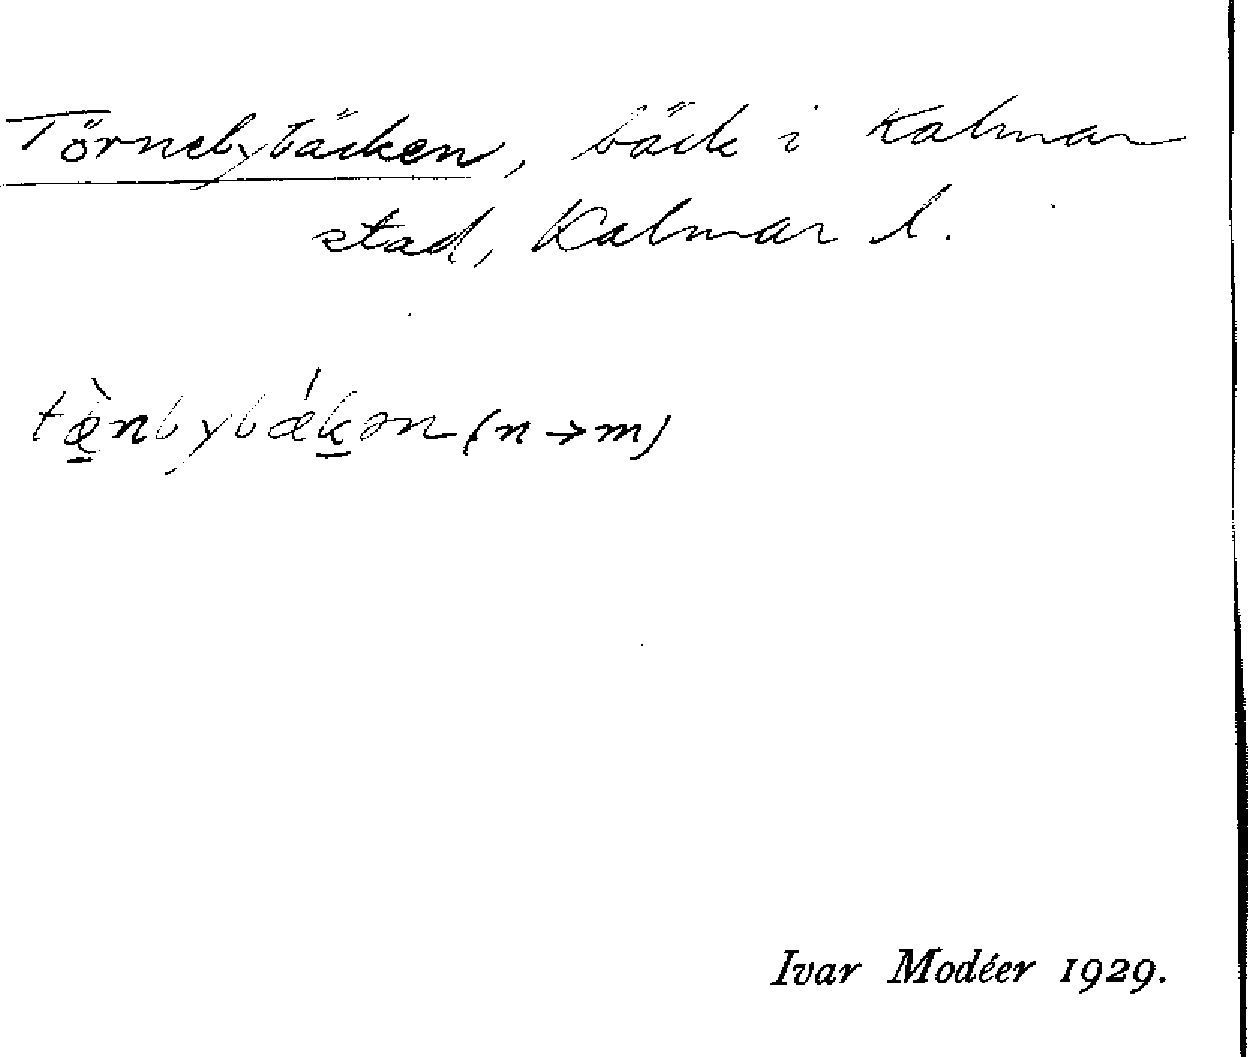 Törnebybäcken, bäck i Kalmar
stad, Kalmar l.
tæ̱̀nbybǽḵən (n→m)
Ivar Modéer 1929.